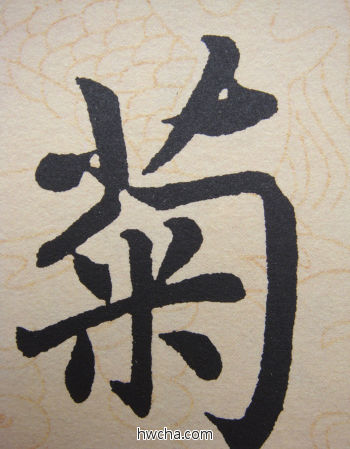 菊
hwcha.com